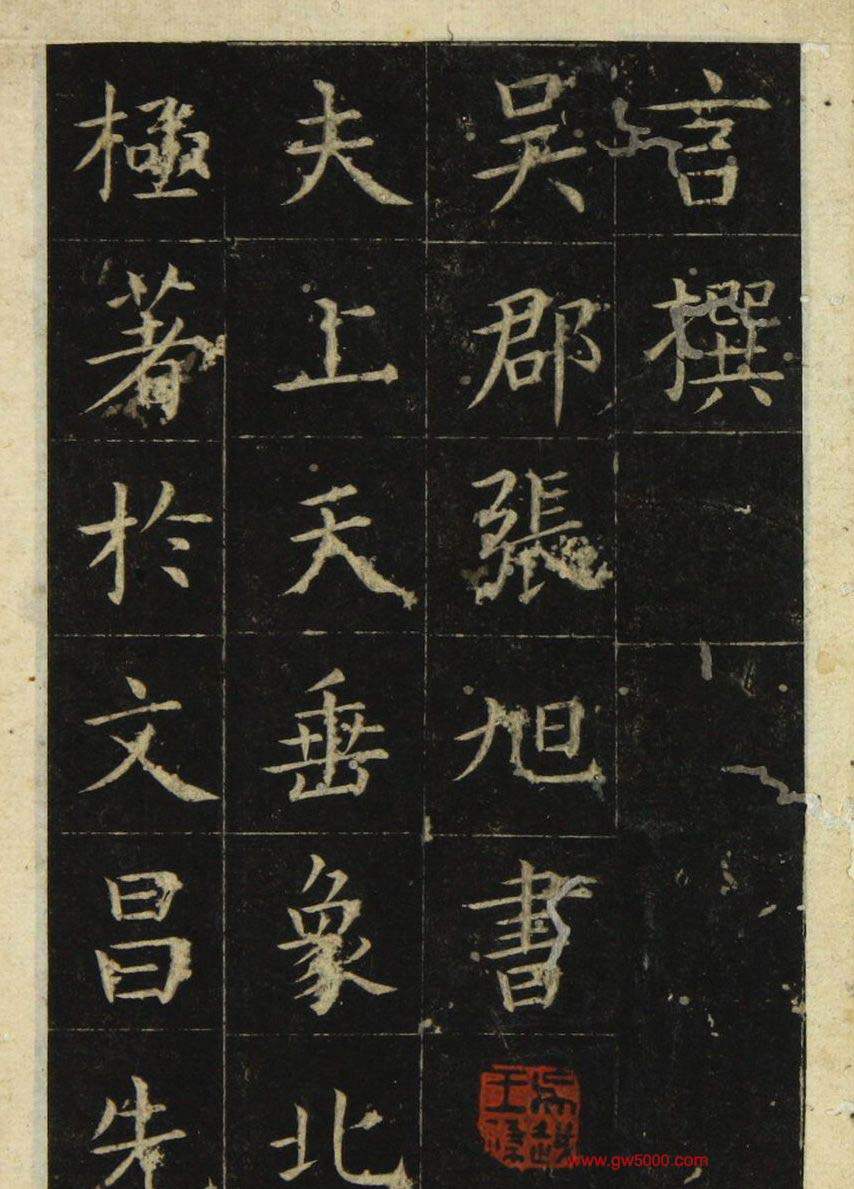 言撰
吴郡張旭書
夫上天垂象北
極著於文昌先
www.gw5000.com